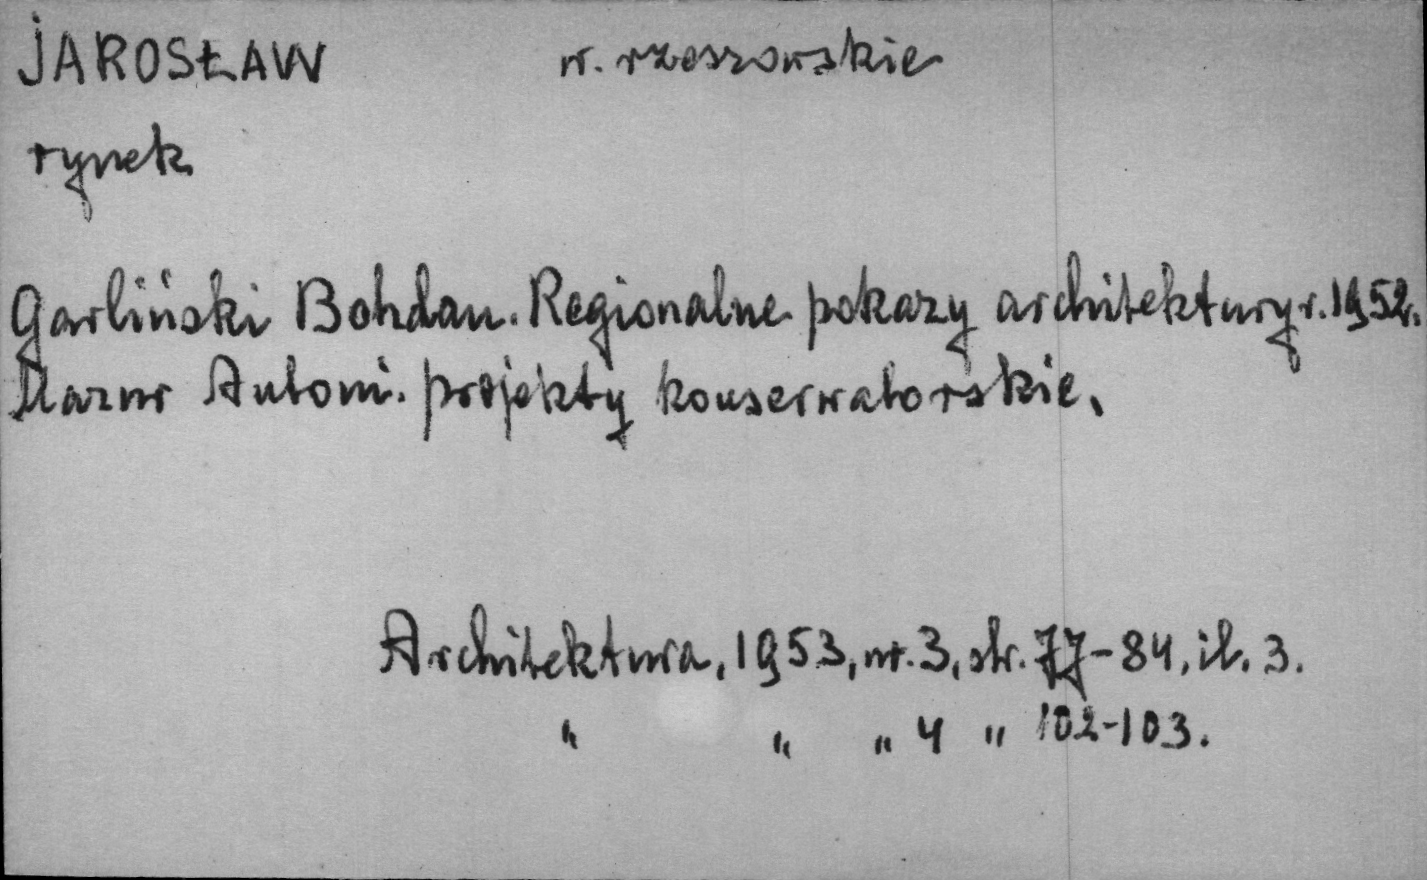 JAROSŁAW w. rzeszowskie
rynek
Garliński Bohdan. Regionalne pokazy architektury r. 1952.
Mazur Antoni. projekty konserwatorskie.
Architektura, 1953, nr. 3, str. 77-84, il. 3.
" " " 4 " 102-103.